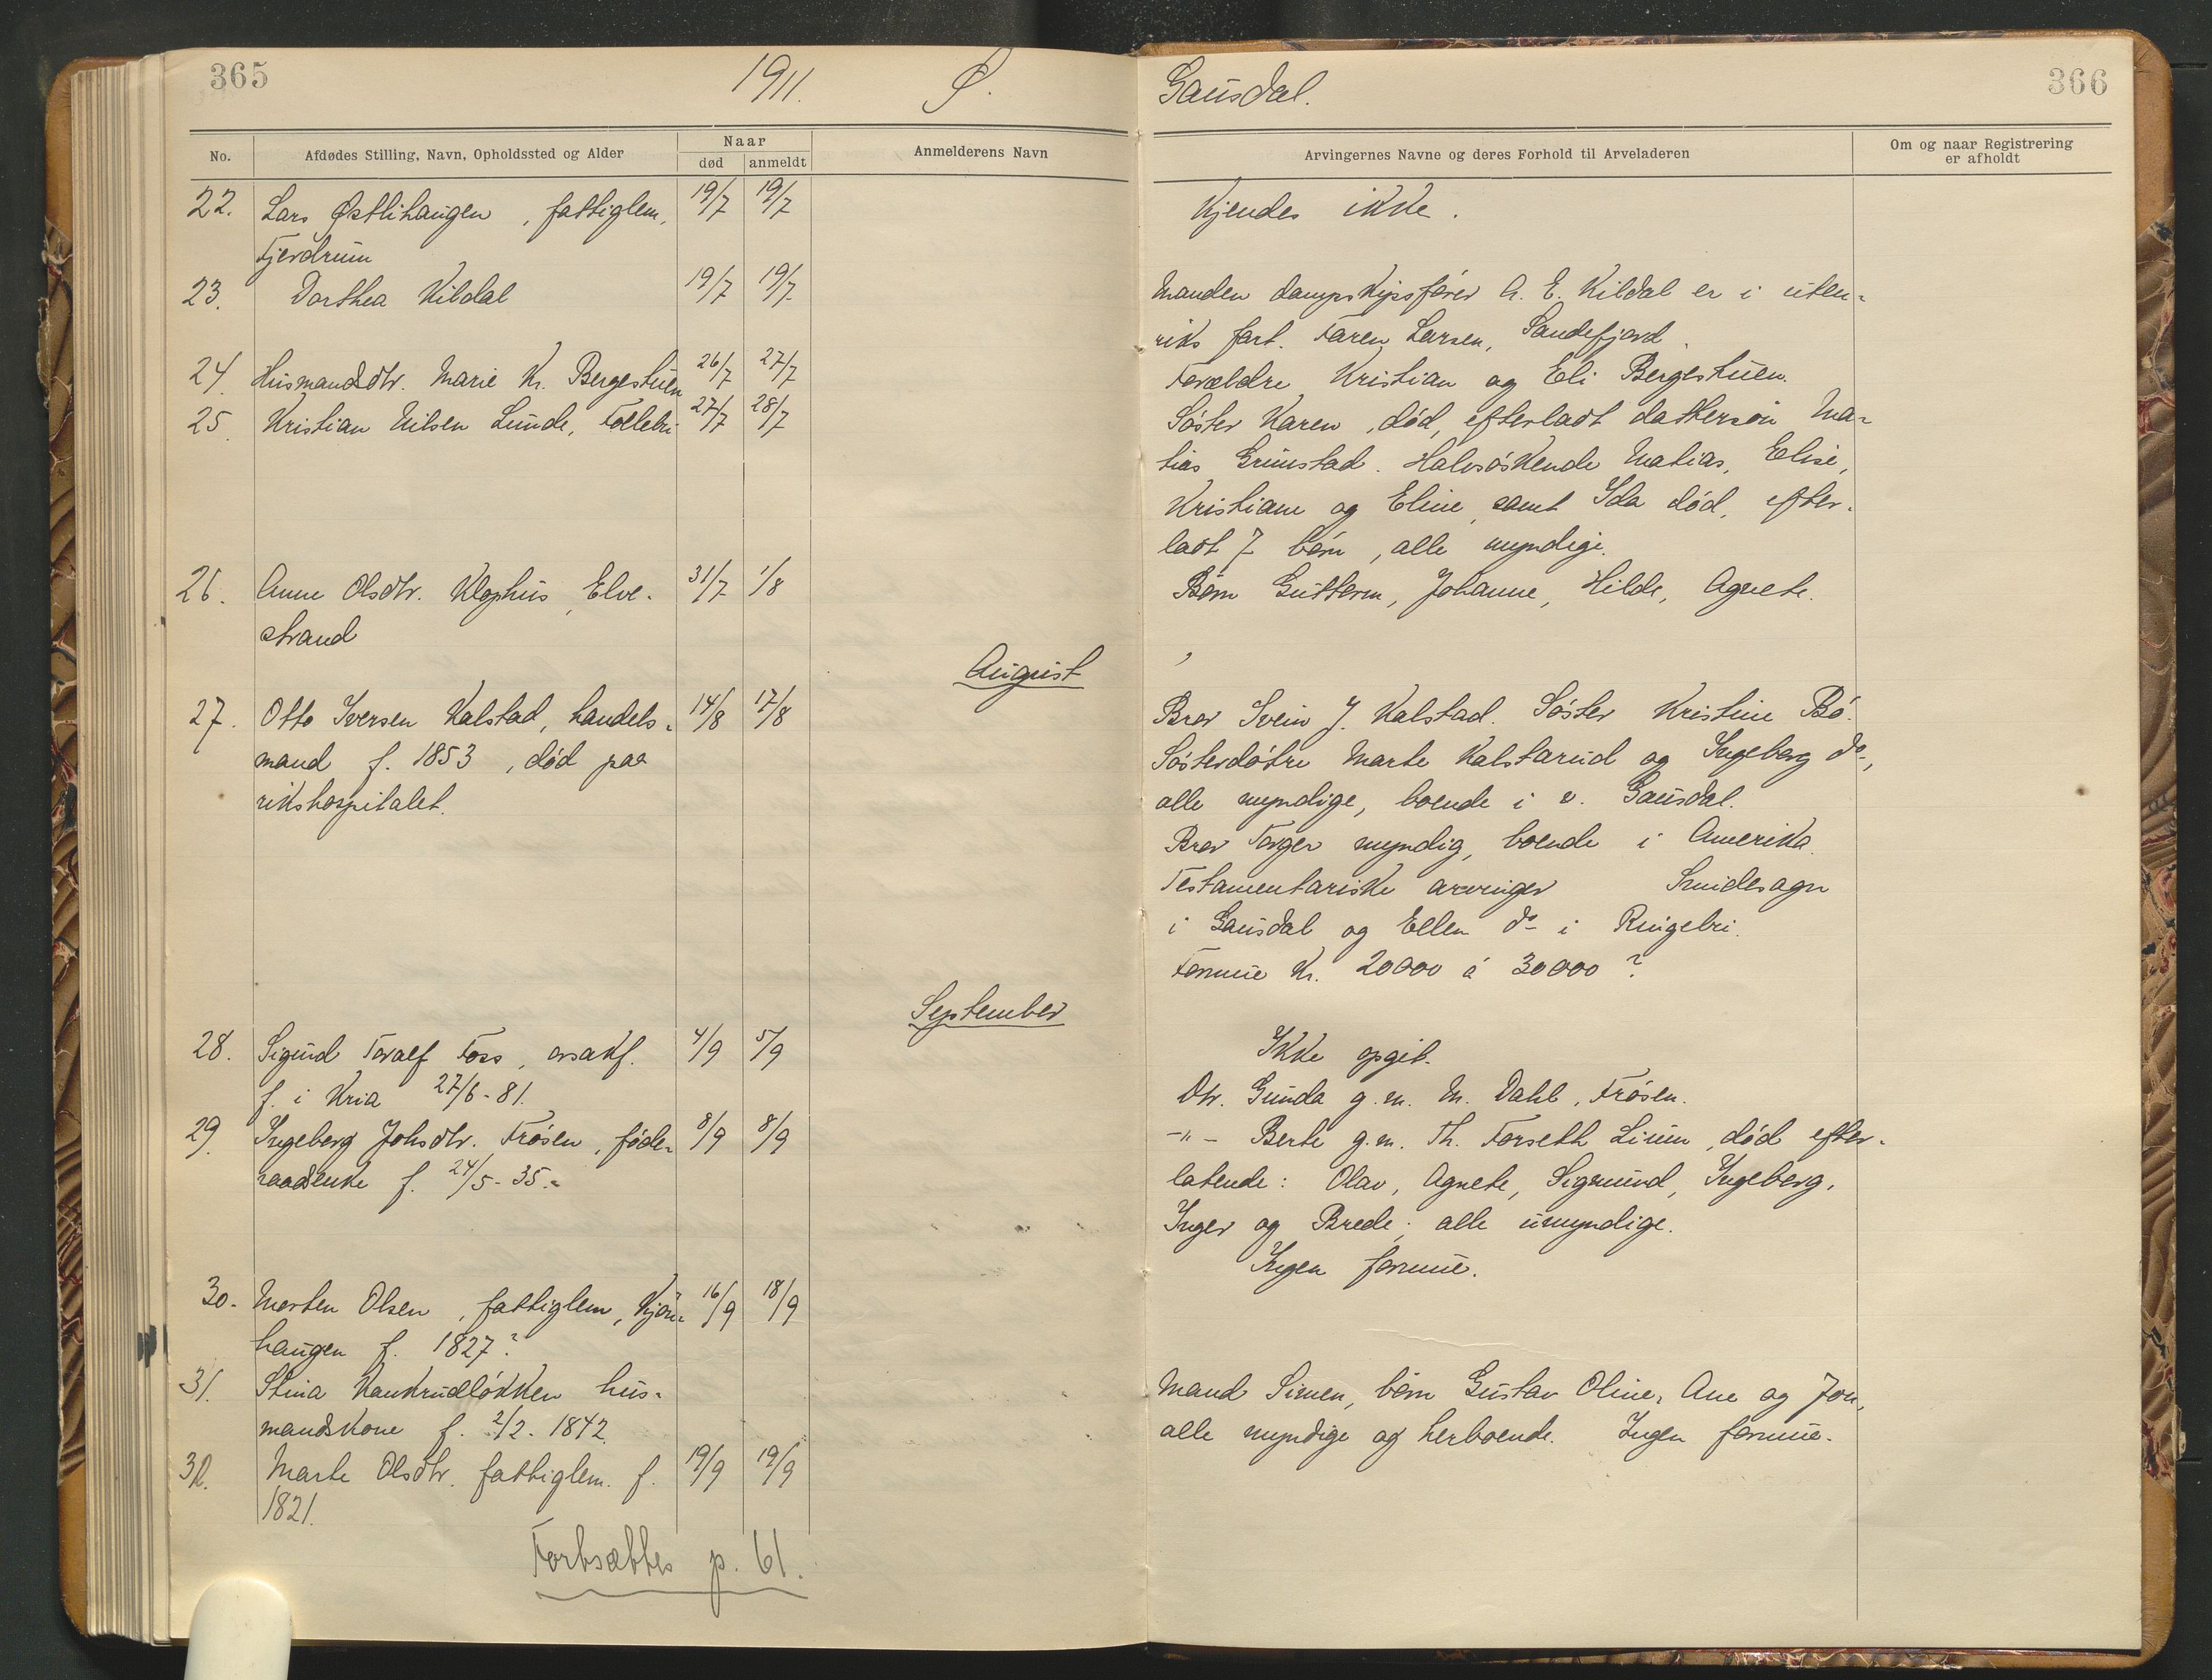 365
1911. Ø.
No.
Afdødes Stilling, Navn, Opholdssted og Alder
Naar
død
anmeldt
Anmelderens Navn
22. Lars Østlihaugen, fattiglem, 19/7 19/7
Fjerdrum
23. Dorthea Kildal 19/7 19/7
24. Husmandsdtr. Marie K. Bergestuen 26/7 27/7
25. Kristian Nilsen Lunde, Follebu 27/7 28/7
26. Anne Olsdtr. Klophus, Elve- 31/7 1/8
strand
August
27. Otto Iversen Kalstad, handels- 14/8 17/8
mand f. 1853, død paa
rikshospitalet.
September
28. Sigurd Toralf Foss, 4/9 5/9
f. i Kria 27/6-81.
29. Ingeborg Johsdtr. Frøsen, føde- 8/9 8/9
raadsenke f. 24/5-35.-
30. Morten Olsen, fattiglem, 16/9 18/9
haugen f. 1827?
31. Stina Kankrudløkken hus-
mandskone f. 2/2-1842
32. Marte Olsdtr. fattiglem. f. 19/9 19/9
1821.
Fortsættes p. 61.
Gausdal.
366
Arvingernes Navne og deres Forhold til Arveladeren
Om og naar Registrering
er afholdt
Kjendes ikke.
Manden dampskipsfører A. E. Kildal er i uten-
riks fart. Faren Larsen, Sandefjord.
Forældre Kristian og Eli Bergestuen.
Søster Karen, død, efterladt dattersøn Ma-
tias Grimstad. Halvsøskende Matias, Elise,
Kristiane og Eline, samt Ida død, efter-
ladt 7 børn, alle myndige.
Børn Guttorm, Johanne, Hilde, Agnete.
Bror Svein J. Kalstad. Søster Kristine Bø.
Søsterdøtre Marte Kalstarud og Ingeborg do,
alle myndige, boende i v. Gausdal.
Bror Torger myndig, boende i Amerika.
Testamentariske arvinger Smidesagn
i Gausdal og Ellen do i Ringebu.
Formue Kr. 20000 á 30000?
Ikke opgit.
Dtr. Gunda g.m. M. Dahl, Frøsen.
-"- Berte g.m. Th. Forseth Lium, død efter-
latende: Olav, Agnete, Sigmund, Ingeborg,
Inger og Brede; alle umyndige.
Ingen formue.
Mand Simen, børn Gustav Oline, Ane og Jon,
alle myndige og herboende. Ingen formue.